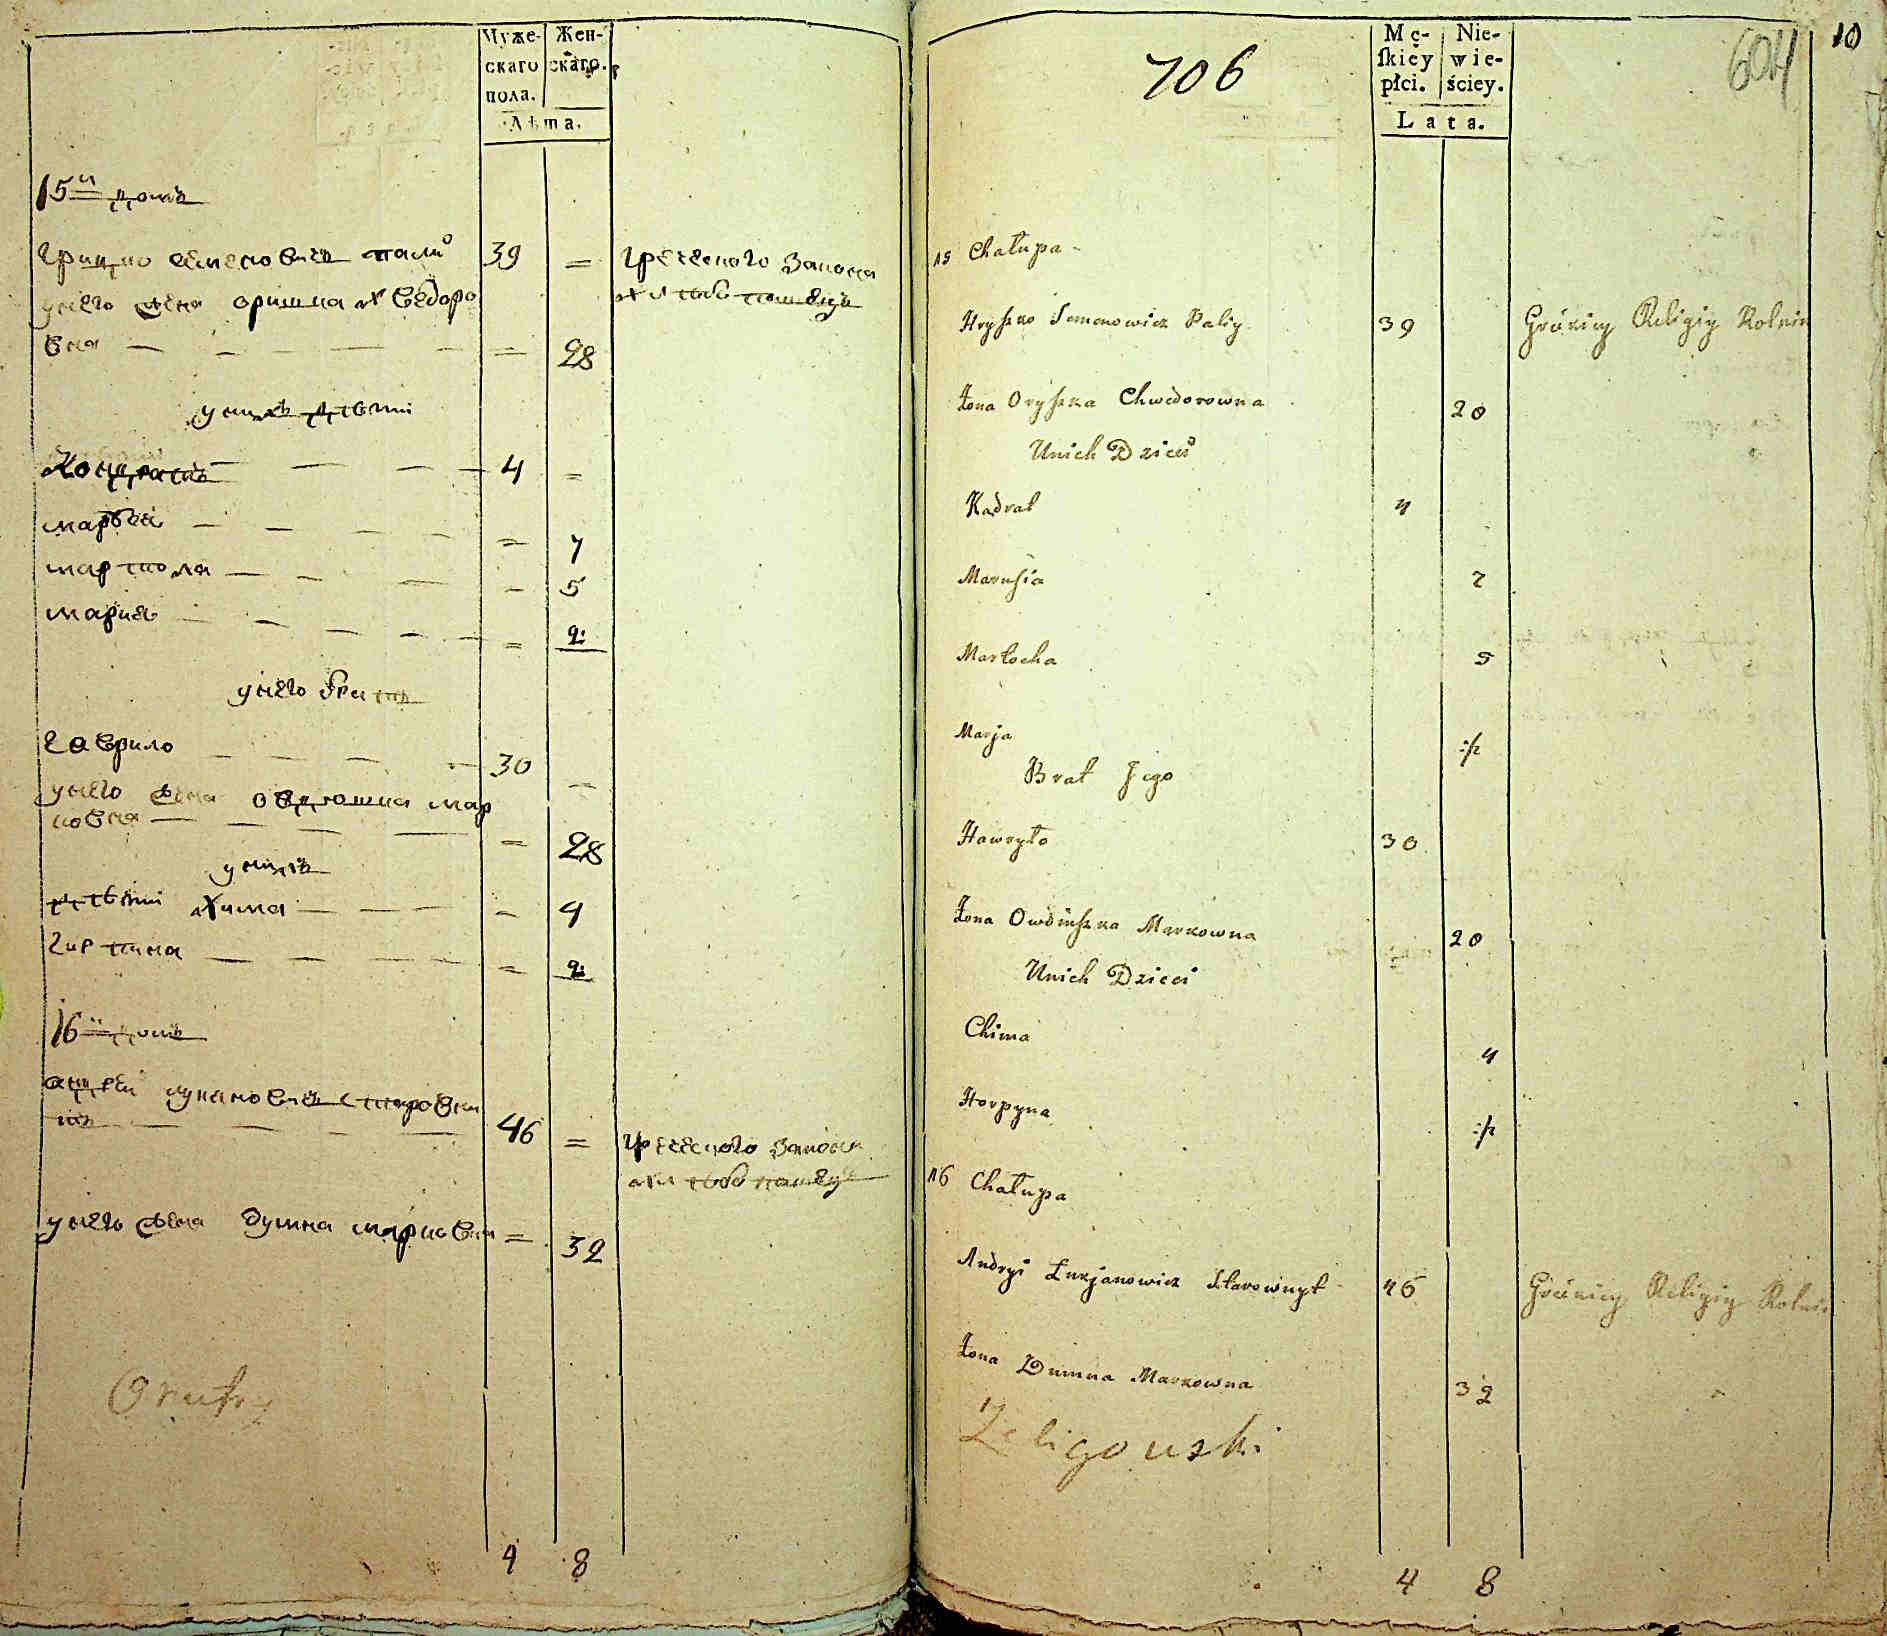 Муже- Жен-
скаго скаго.
пола.
Лѣта.
15й домъ
грицко семеновичъ палій 39 = греческого закона
унего жена оришка хведоро
вна = 28
унихъ дѣтти
Кондратъ 4 =
марѵся = 7
мартоха - 5
мария = ½
унего братъ
гаврило 30 =
унего жена овдюшка мар
ковна = 28
унихъ
дѣтти хима - 4
гарпина = ½
16й домъ
андрей лукяновичъ старовни
46 = греческого закона
унего жена думна марковна = 32
4 8
706
Mę- Nie-
skiey wie-
płci. ściey.
Lata.
604
10
15 Chałupa
Hryszko Semenowicz Paliy 39 Gréckiey Religiy Rolnik
Żona Oryszka Chwedorowna 28
Unich Dzieci
Kadrat 4
Marusia 7
Martocha 5
Marja ½
Brat Jego
Hawryło 30
Żona Owdiuszka Markowna 28
Unich Dzieci
Chima 4
Horpyna ½
16 Chałupa
Andryi Łukjanowicz Starownyk 46 Gréckiey Religiy Rolnik
Żona Dumna Markowna 32
Zeligowski
4 8